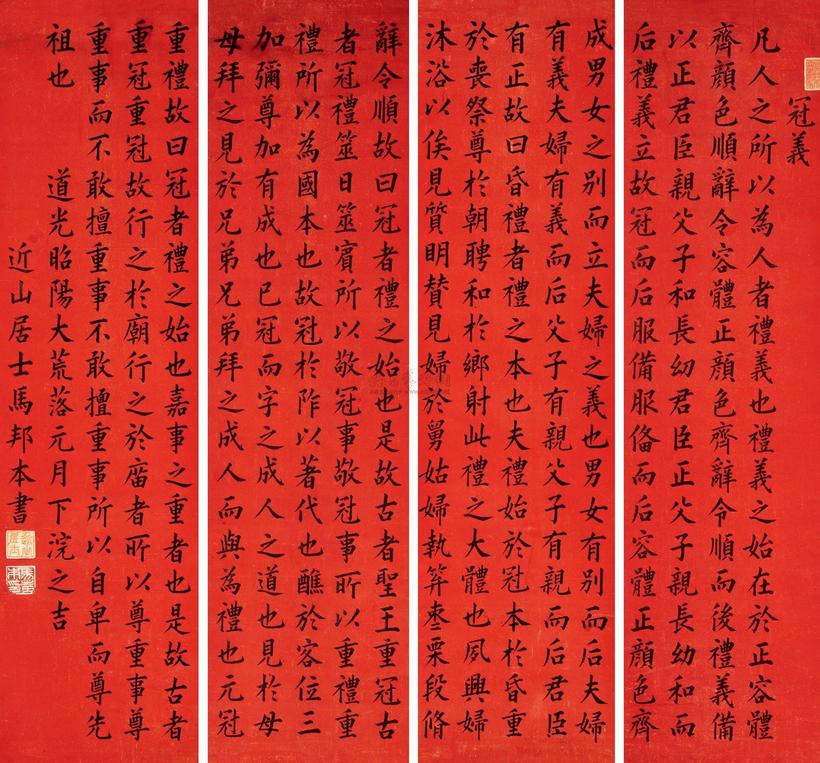 冠義
凡人之所以為人者禮義也禮義之始在於正容體
齊顏色順辭令容體正顏色齊辭令順而後禮義備
以正君臣親父子和長幼君臣正父子親長幼和而
后禮義立故冠而后服備服俻而后容體正顏色齊
成男女之別而立夫婦之義也男女有別而后夫婦
有義夫婦有義而后父子有親父子有親而后君臣
有正故曰昏禮者禮之本也夫禮始於冠本於昏重
於喪祭尊於朝聘和於鄉射此禮之大體也夙興婦
沐浴以俟見質明贊見婦於舅姑婦執笲棗栗段脩
辭令順故曰冠者禮之始也是故古者聖王重冠古
者冠禮筮日筮賓所以敬冠事敬冠事所以重禮重
禮所以為國本也故冠於阼以著代也醮於客位三
加彌尊加有成也已冠而字之成人之道也見於母
母拜之見於兄弟兄弟拜之成人而與為禮也元冠
重禮故曰冠者禮之始也嘉事之重者也是故古者
重冠重冠故行之於廟行之於庿者所以尊重事尊
重事而不敢擅重事不敢擅重事所以自卑而尊先
祖也 道光昭陽大荒落元月下浣之吉
近山居士馬邦本書